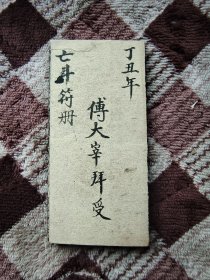 丁丑年
傅大宰拜受
七斗符册